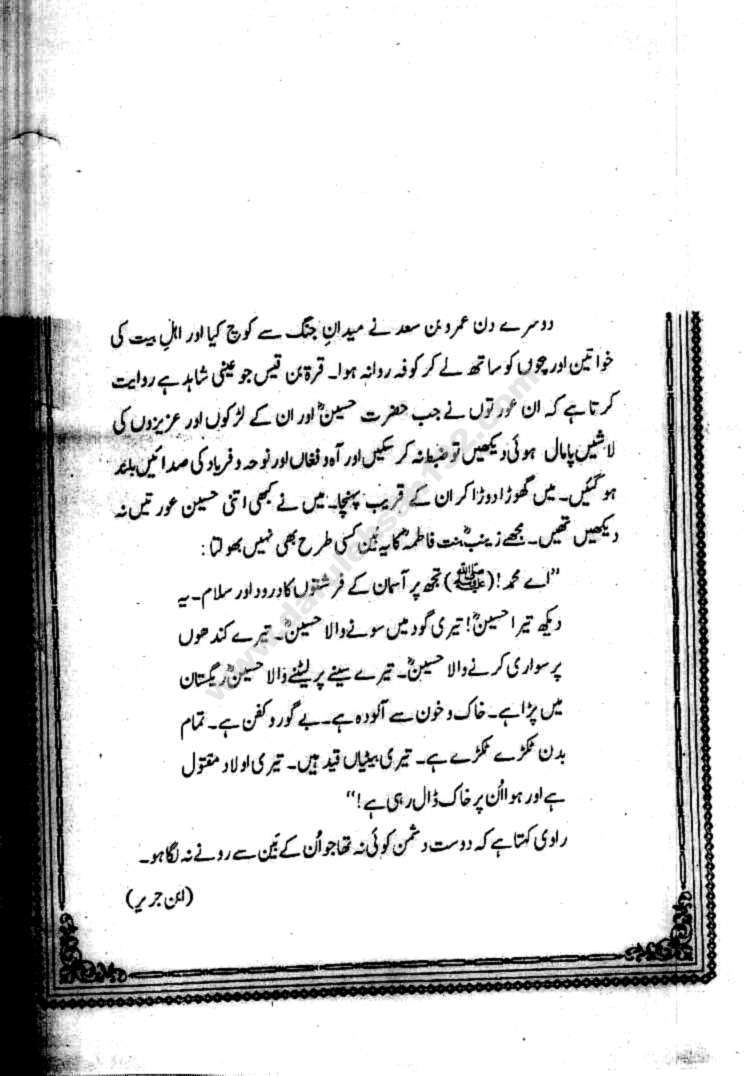 دوسرے دن عمرو بن سعد نے میدانِ جنگ سے کوچ کیا اور اہلِ بیت کی
خواتین اور بچوں کو ساتھ لے کر کوفہ روانہ ہوا۔ قرۃ بن قیس جو عینی شاہد ہے روایت
کرتا ہے کہ ان عورتوں نے جب حضرت حسینؓ اور ان کے لڑکوں اور عزیزوں کی
لاشیں پامال ہوئی دیکھیں تو ضبط نہ کر سکیں اور آہ و فغاں اور نوحہ و فریاد کی صدائیں بلند
ہو گئیں۔ میں گھوڑا دوڑا کر ان کے قریب پہنچا۔ میں نے کبھی اتنی حسین عورتیں نہ
دیکھیں تھیں۔ مجھے زینبؓ بنت فاطمہؓ کا یہ بَین کسی طرح بھی نہیں بھولتا :
”اے محمد! (ﷺ) تجھ پر آسمان کے فرشتوں کا درود اور سلام۔ یہ
دیکھ تیرا حسینؓ! تیری گود میں سونے والا حسینؓ۔ تیرے کندھوں
پر سواری کرنے والا حسینؓ۔ تیرے سینے پر لیٹنے والا حسینؓ ریگستان
میں پڑا ہے۔ خاک و خون سے آلودہ ہے۔ بے گور و کفن ہے۔ تمام
بدن ٹکڑے ٹکڑے ہے۔ تیری بیٹیاں قید ہیں۔ تیری اولاد مقتول
ہے اور ہوا اُن پر خاک ڈال رہی ہے!“
راوی کہتا ہے کہ دوست دشمن کوئی نہ تھا جو اُن کے بَین سے رونے نہ لگا ہو۔
(ابن جریر)